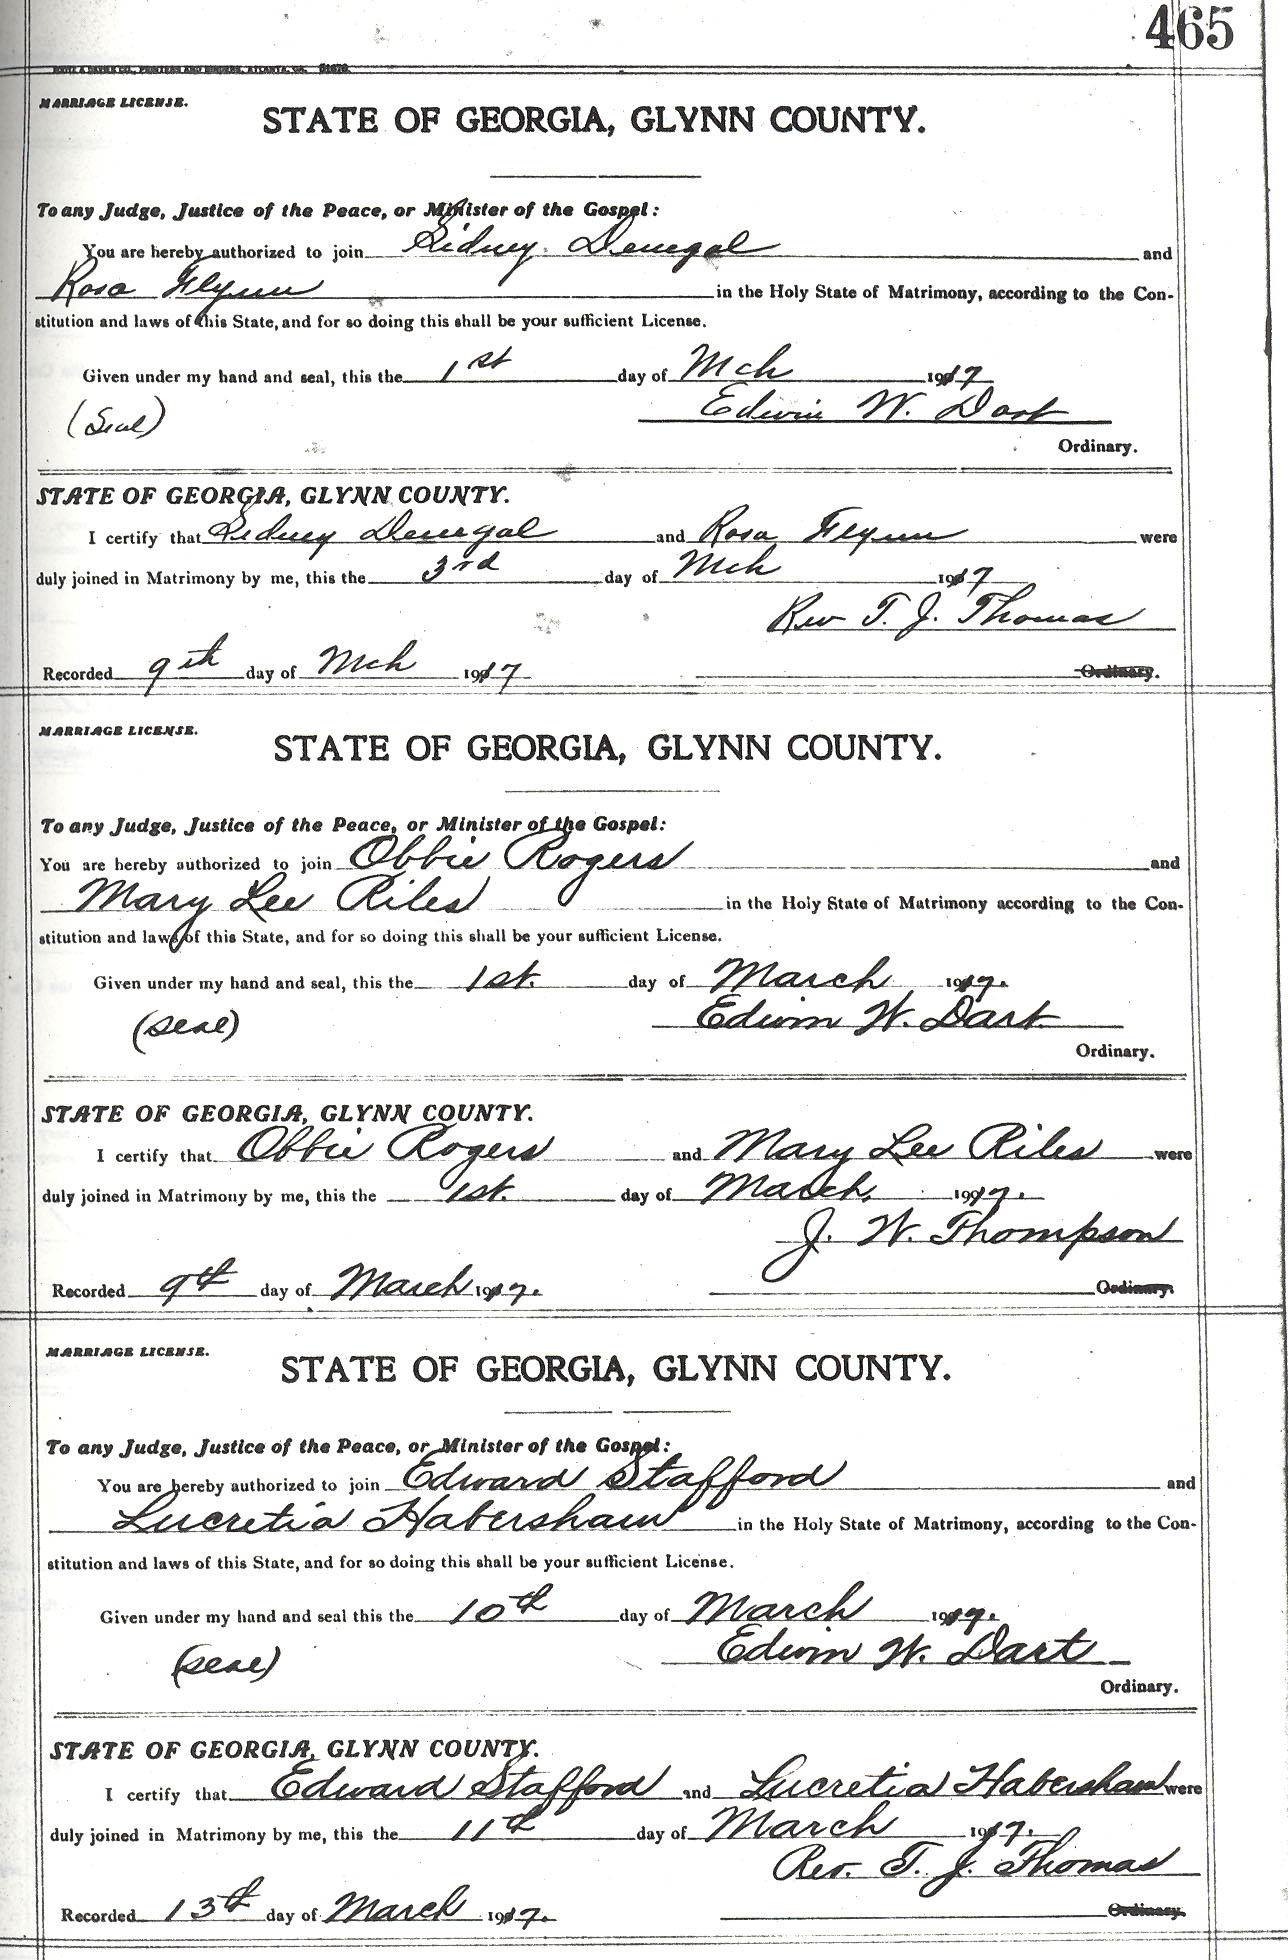 465
FOOTE & DAVIES CO., PRINTERS AND BINDERS, ATLANTA, GA.
MARRIAGE LICENSE.
STATE OF GEORGIA, GLYNN COUNTY.
To any Judge, Justice of the Peace, or Minister of the Gospel:
You are hereby authorized to join Sidney Denegal and
Rosa Flynn in the Holy State of Matrimony, according to the Con-
stitution and laws of this State, and for so doing this shall be your sufficient License.
Given under my hand and seal, this the 1st day of Mch 1917
(Seal) Edwin W. Dart
Ordinary.
STATE OF GEORGIA, GLYNN COUNTY.
I certify that Sidney Denegal and Rosa Flynn were
duly joined in Matrimony by me, this the 3rd day of Mch 1917
Rev T. J. Thomas
Recorded 9th day of Mch 1917 Ordinary.
MARRIAGE LICENSE.
STATE OF GEORGIA, GLYNN COUNTY.
To any Judge, Justice of the Peace, or Minister of the Gospel:
You are hereby authorized to join Obbie Rogers and
Mary Lee Riles in the Holy State of Matrimony according to the Con-
stitution and laws of this State, and for so doing this shall be your sufficient License.
Given under my hand and seal, this the 1st. day of March 1917.
(seal) Edwin W. Dart
Ordinary.
STATE OF GEORGIA, GLYNN COUNTY.
I certify that Obbie Rogers and Mary Lee Riles were
duly joined in Matrimony by me, this the 1st. day of March, 1917.
J. W. Thompson
Recorded 9th day of March 1917. Ordinary.
MARRIAGE LICENSE.
STATE OF GEORGIA, GLYNN COUNTY.
To any Judge, Justice of the Peace, or Minister of the Gospel:
You are hereby authorized to join Edward Stafford and
Lucretia Habersham in the Holy State of Matrimony, according to the Con-
stitution and laws of this State, and for so doing this shall be your sufficient License.
Given under my hand and seal this the 10th day of March 1917.
(seal) Edwin W. Dart
Ordinary.
STATE OF GEORGIA, GLYNN COUNTY.
I certify that Edward Stafford and Lucretia Habersham were
duly joined in Matrimony by me, this the 11th day of March 1917.
Rev. T. J. Thomas
Recorded 13th day of March 1917. Ordinary.